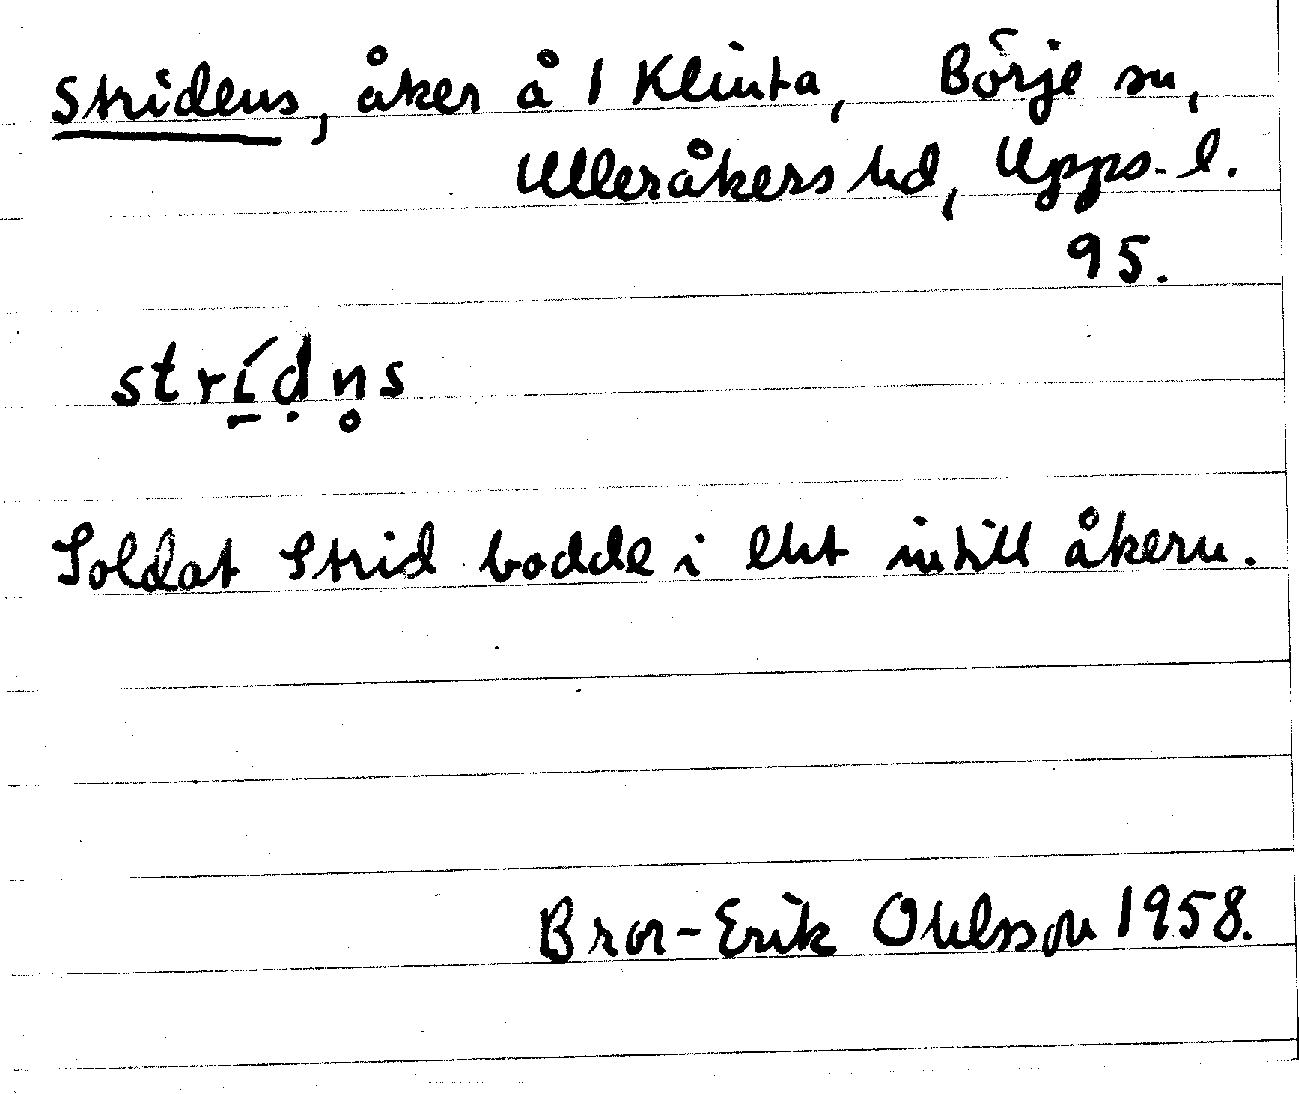 Stridens, åker å 1 Klinta, Börje sn,
Ulleråkers hd, Upps. l.
95.
strí̱ḍn̥s
Soldat Strid bodde i ett intill åkern.
Bror-Erik Ohlsson 1958.